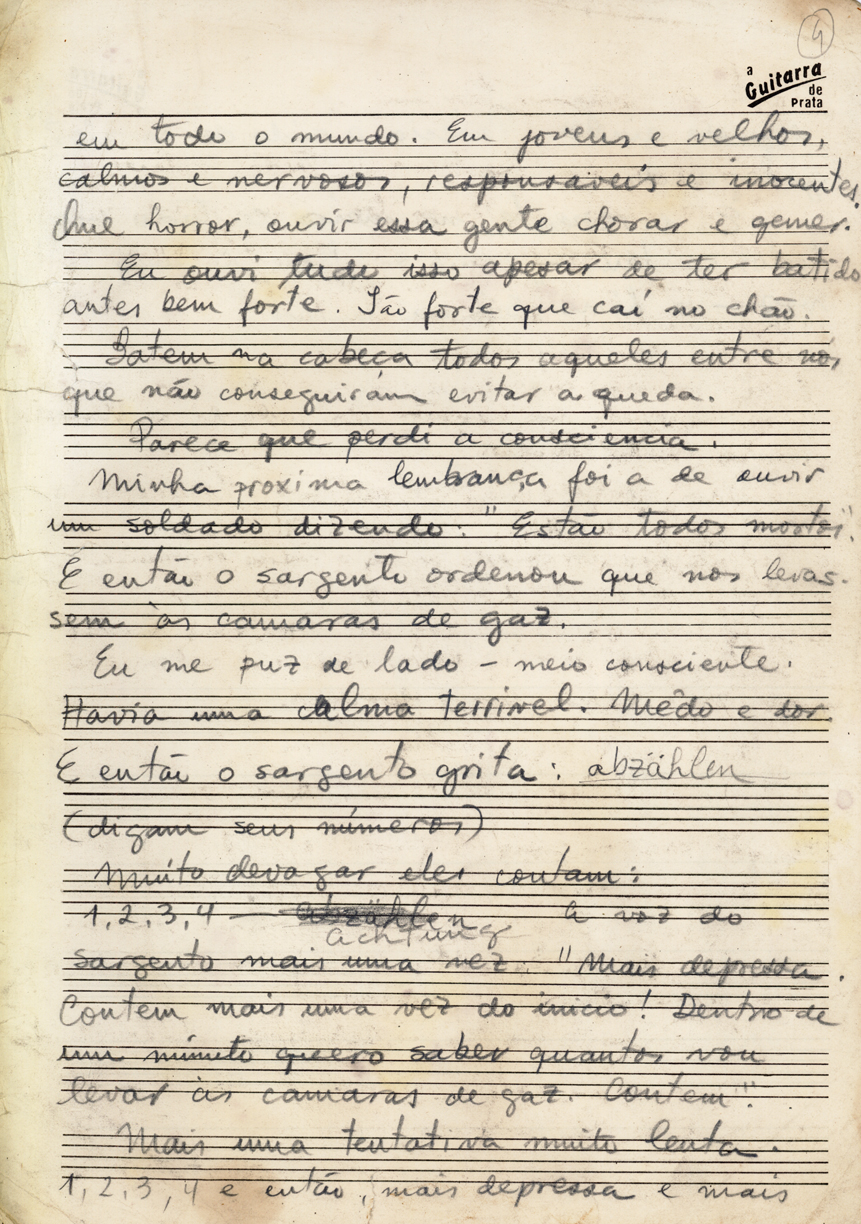 4
a
Guitarra
de
Prata
em todo o mundo. Em jovens e velhos,
calmos e nervosos, responsaveis e inocentes.
Que horror, ouvir essa gente chorar e gemer.
Eu ouvi tudo isso apesar de ter batido
antes bem forte. Tão forte que caí no chão.
Batem na cabeça todos aqueles entre nós
que não conseguirám evitar a queda.
Parece que perdi a consciencia.
Minha proxima lembrança foi a de ouvir
um soldado dizendo: "Estão todos mortos".
E então o sargento ordenou que nos levas-
sem às camaras de gaz.
Eu me puz de lado – meio consciente.
Havia uma calma terrivel. Mêdo e dor.
E então o sargento grita: abzählen
(digam seus números)
Muito devagar eles contam:
1, 2, 3, 4 — abzählen A voz do
achtung
sargento mais uma vez: "Mais depressa.
Contem mais uma vez do inicio! Dentro de
um minuto quero saber quantos vou
levar às camaras de gaz. Contem".
Mais uma tentativa muito lenta.
1, 2, 3, 4 e então, mais depressa e mais